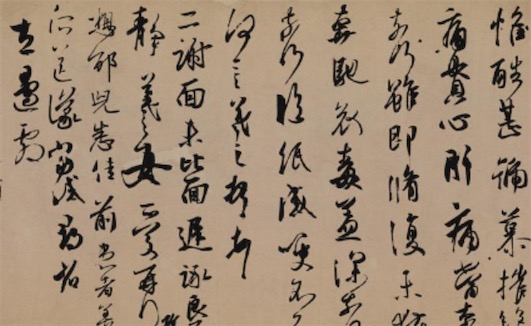 惟酷甚號慕摧絕
痛貫心肝痛當奈
奈何雖即脩復未獲
奔馳哀毒益深奈
奈何臨紙感哽不知
何言羲之頓首
二謝面未比面遲詠良不
靜羲之女愛再拜
想邵兒悉佳前患者善
所送議當試尋省
左邊劇